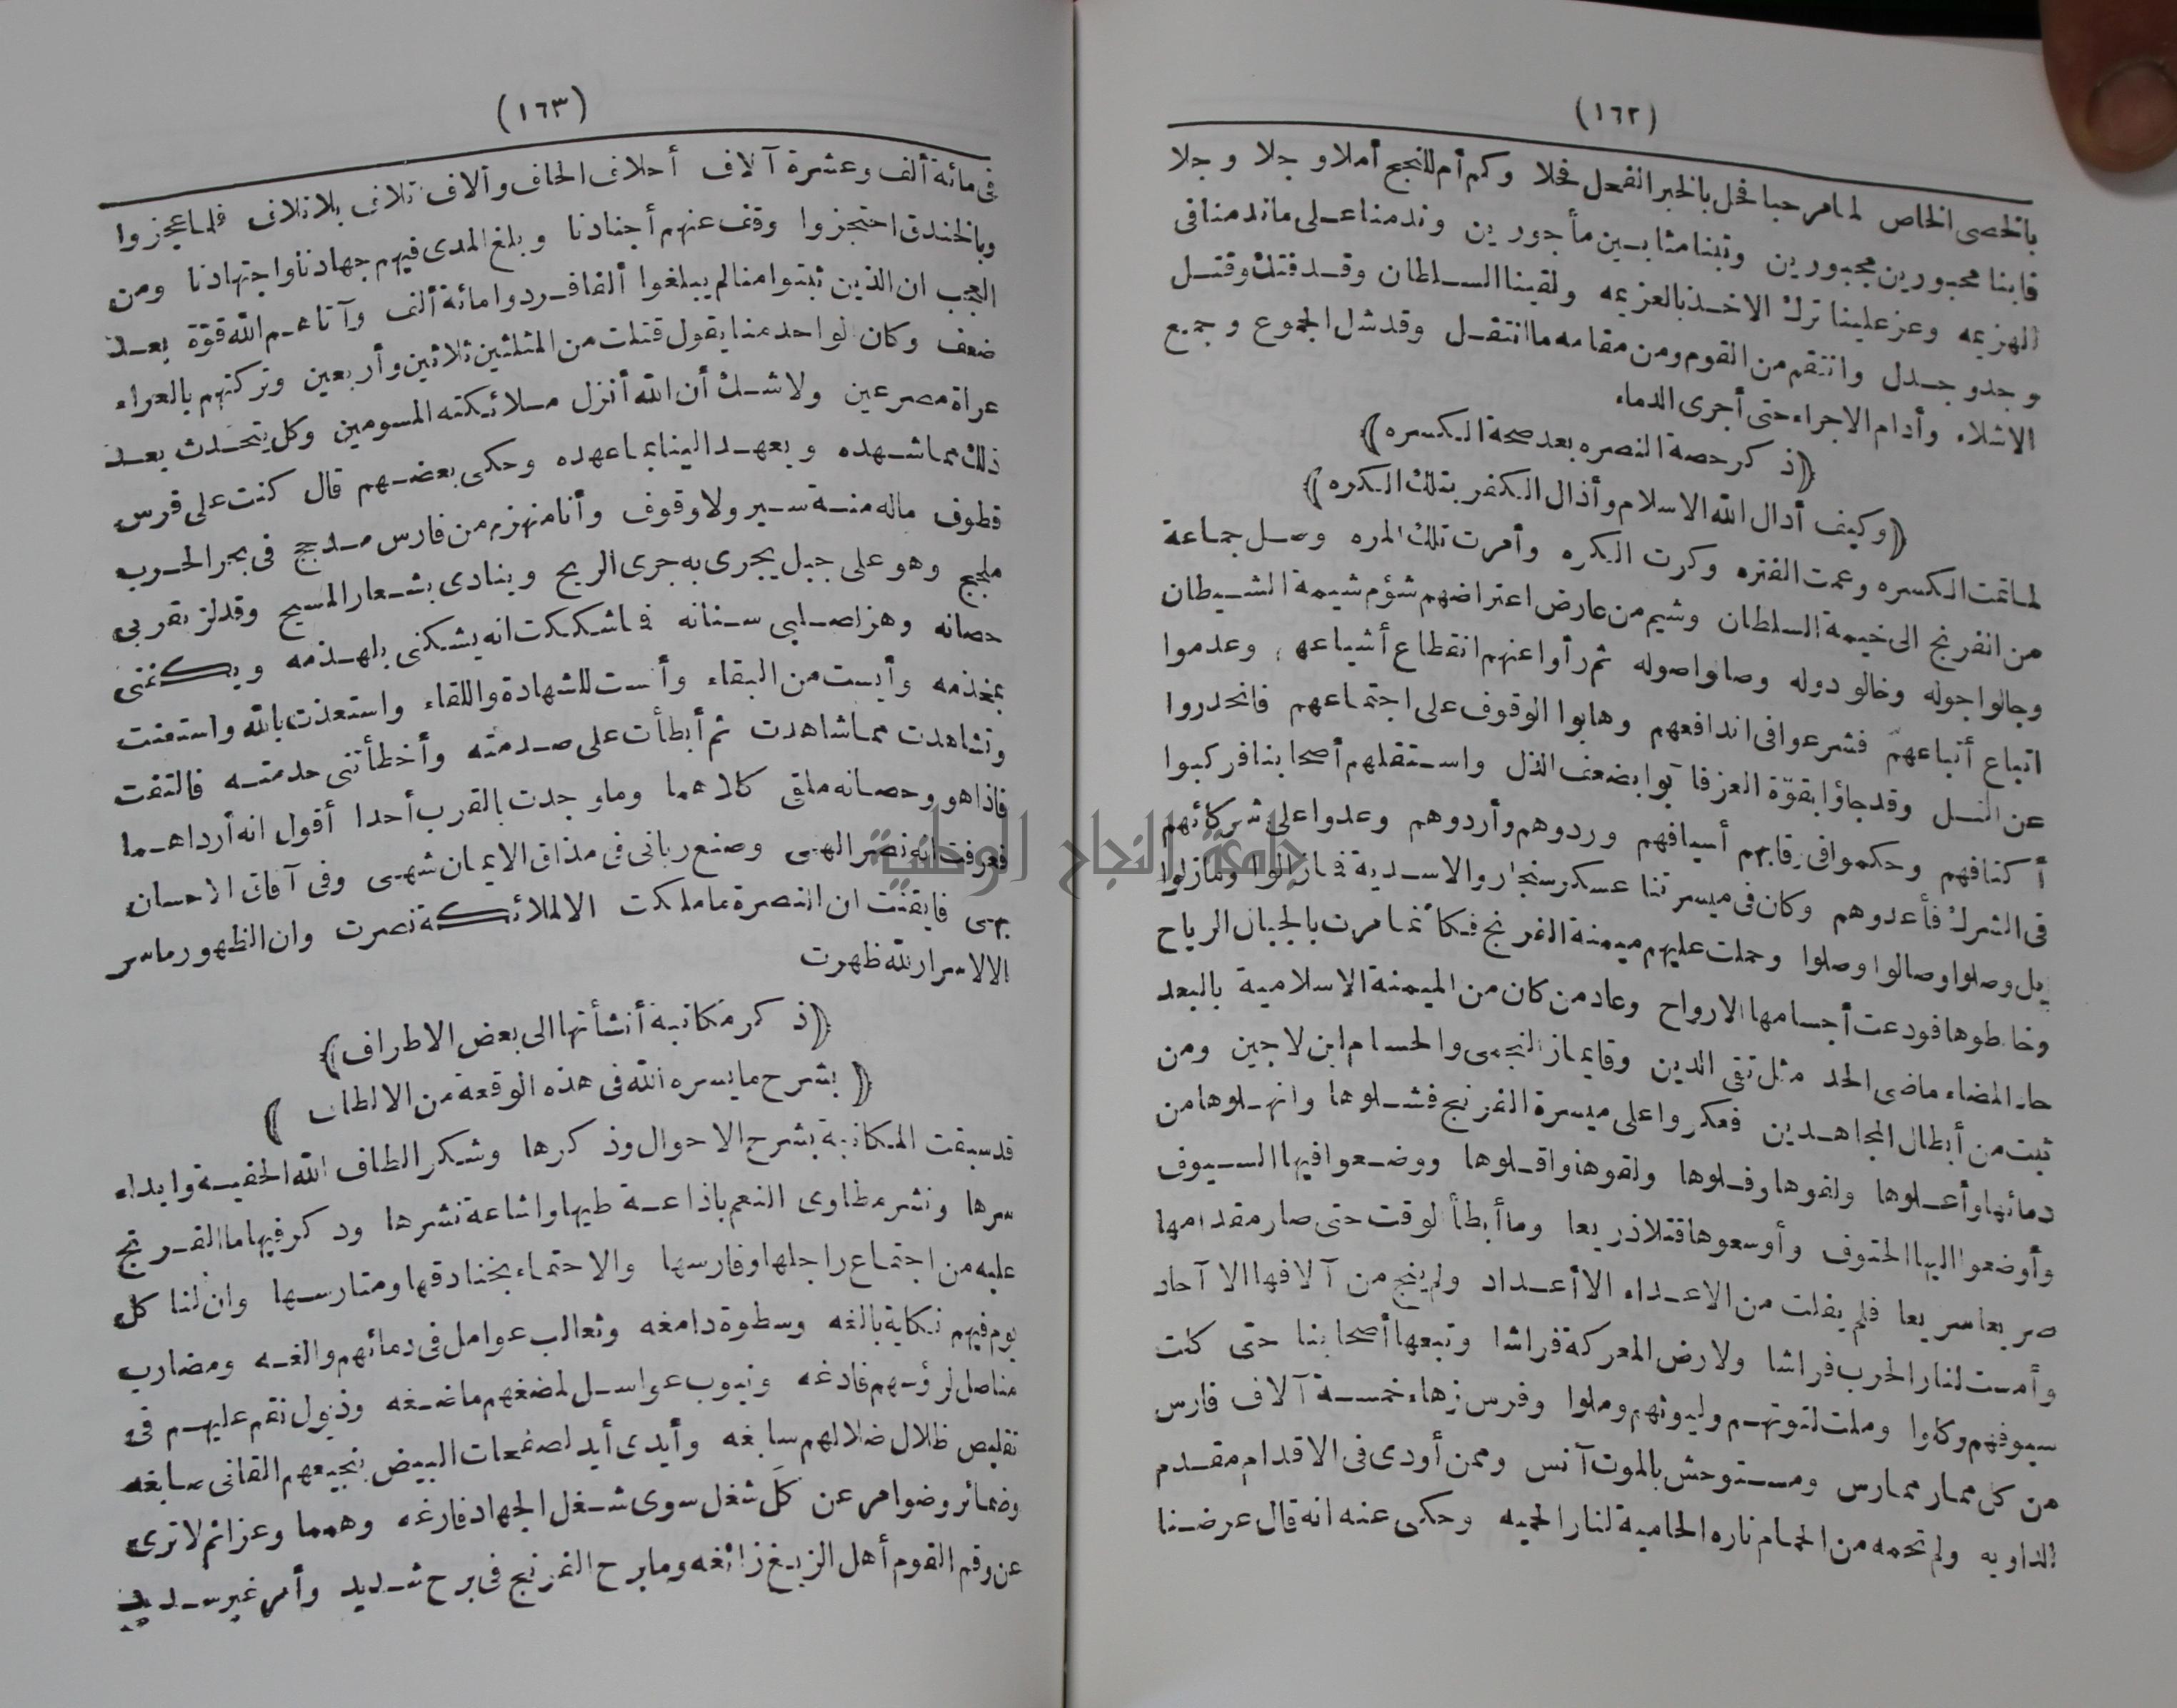 (١٦٢)
بالخصى الخاص لما مر حبا فحل بالخبر الفحل فحلا وكم أم للنجح أملا وجلا وجلا
فابنا محبورين مجبورين وتبنا مثابين مأجورين وندمنا على ما ندمنا فى
الهزيمه وعز علينا ترك الاخذ بالعزيمه ولقينا السلطان وقد فتك وقتل
وجد وجدل وانتقم من القوم ومن مقامه ما انتقل وقد شل الجموع وجميع
الاشلاء وأدام الاجراء حتى أجرى الدماء
﴿ذكر حصة النصره بعد صحة الكسره﴾
﴿وكيف أدال الله الاسلام وأذال الكفر بتلك الكره﴾
لما تمت الكسره وعمت الفتره وكرت الكره وأمرت تلك المره وصل جماعة
من الفرنج الى خيمة السلطان وشيم من عارض اعتراضهم شؤم شيمة الشيطان
وجالوا جوله وخالو دوله وصالوا صوله ثم رأوا عنهم انقطاع أشياعهم وعدموا
اتباع أتباعهم فشرعوا فى اندافعهم وهابوا الوقوف على اجتماعهم فانحدروا
عن التل وقد جاؤا بقوّة العز فآبوا بضعف الذل واستقلهم أصحابنا فركبوا
أكتافهم وحكموا فى رقابهم أسيافهم وردوهم وأردوهم وعدوا على شركائهم
فى الشرك فأعدوهم وكان فى ميسرتنا عسكر سنجار والاسدية فما زالوا وما زلوا
بل وصلوا وصالوا وصلوا وحملت عليهم ميمنة الفرنج فكأنما مرت بالجبال الرياح
وخاطوها فودعت أجسامها الارواح وعاد من كان من الميمنة الاسلامية بالبعد
حاد المضاء ماضى الحد مثل تقى الدين وقايماز النجمى والحسام ابن لاجين ومن
ثبت من أبطال المجاهدين فعكروا على ميسرة الفرنج فشلوها وانهلوها من
دمائها وأعلوها ولفوها وفلوها ولقوها واقلوها ووضعوا فيها السيوف
وأوضعوا اليها الحتوف وأوسعوها قتلا ذريعا وما أبطأ الوقت حتى صار مقدامها
صريعا سريعا فلم يفلت من الاعداء الا أعداد ولم ينج من آلافها الا آحاد
وأمست لنار الحرب فراشا ولارض المعركة فراشا وتبعها أصحابنا حتى كلت
سيوفهم وكلوا وملت لتوتهم وليوثهم وملوا وفرس زهاء خمسة آلاف فارس
من كل ممار ممارس ومستوحش بالموت آنس وممن أودى فى الاقدام مقدم
الداويه ولم تحمه من الحمام ناره الحامية لنار الحميه وحكى عنه انه قال عرضنا
(١٦٣)
فى مائة ألف وعشرة آلاف أحلاف الحاف وألاف تلافى بلا تلافى فلما عجزوا
وبالخندق احتجزوا وقف عنهم أجنادنا وبلغ المدى فيهم جهادنا واجتهادنا ومن
العجب ان الذين ثبتوا منا لم يبلغوا ألفا فردوا مائة ألف وآتاهم الله قوّة بعد
ضعف وكان الواحد منا يقول قتلت من المثلثين ثلاثين وأربعين وتركتهم بالعراء
عراة مصرعين ولا شك أن الله أنزل ملائكته المسومين وكل يتحدث بعد
ذلك بما شهده ويعهد الينا بما عهده وحكى بعضهم قال كنت على فرس
قطوف ماله منة سير ولا وقوف وأنا منهزم من فارس مدجج فى بحر الحرب
ملجج وهو على جبل يجرى به جرى الريح وينادى بشعار المسيح وقد لز بقربى
حصانه وهز لصلبى سنانه فما شككت انه يشكنى بلهذمه ويكفتنى
بمخذمه وأيست من البقاء وأنست للشهادة واللقاء واستعذت بالله واستعنت
وتشاهدت مما شاهدت ثم أبطأت على صدمته وأخطأتنى حدمته فالتفت
فاذا هو وحصانه ملقى كلاهما وما وجدت بالقرب أحدا أقول انه أرداهما
فعرفت انه نصر الهى وصنع ربانى فى مذاق الايمان شهى وفى آفاق الاحسان
بهى فايقنت ان النصرة ما ملكت الا لملائكة نصرت وان الظهور ما سر
الا لاسرار لله ظهرت
﴿ذكر مكاتبة أنشأتها الى بعض الاطراف﴾
﴿بشرح ما يسره الله فى هذه الوقعة من الالطاف﴾
قد سبقت المكاتبة بشرح الاحوال وذكرها وشكر الطاف الله الخفية وابداء
سرها ونشر مطاوى النعم باذاعة طيها واشاعة نشرها وذكر فيها ما الفرنج
عليه من اجتماع راجلها وفارسها والاحتماء بخنادقها ومتارسها وان لنا كل
يوم فيهم نكاية بالغه وسطوة دامغه وثعالب عوامل فى دمائهم والغه ومضارب
مناصل لرؤسهم فادغه ونيوب عواسل لمضغهم ماضغه وذيول نقم عليهم فى
تقليص ظلال ضلالهم سابغه وأيدى أيد لصفحات البيض بنجيعهم القانى صابغه
وضمائر وضوامر عن كل شغل سوى شغل الجهاد فارغه وهمما وعزائم لا ترى
عن وقم القوم أهل الزيغ زائغه وما برح الفرنج فى برح شديد وأمر غير سديد
جامعة النجاح الوطنية